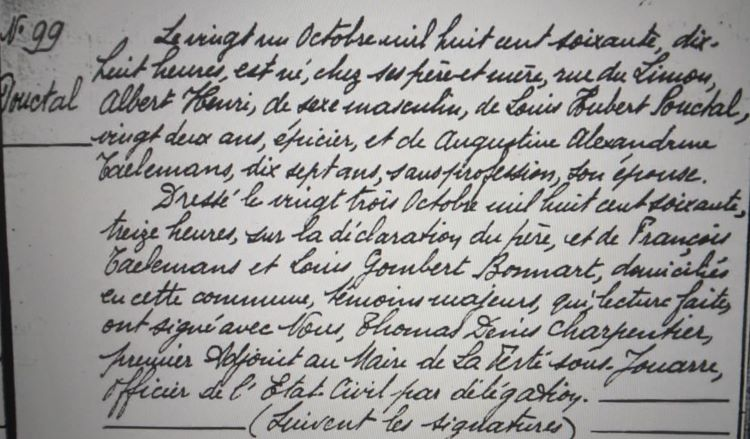 N° 99
Le vingt un Octobre mil huit cent soixante, dix-
huit heures, est né, chez ses père et mère, rue du Limon,
Pouctal
Albert Henri, de sexe masculin, de Louis Hubert Pouctal,
vingt deux ans, épicier, et de Augustine Alexandrine
Taelemans, dix sept ans, sans profession, son épouse.
Dressé le vingt trois Octobre mil huit cent soixante,
treize heures, sur la déclaration du père, et de François
Taelemans et Louis Gombert Bonnart, domiciliés
en cette commune, témoins majeurs, qui, lecture faite,
ont signé avec Nous, Thomas Denis Charpentier,
premier Adjoint au Maire de La Ferté-sous-Jouarre,
Officier de l'Etat-Civil par délégation.
(Suivent les signatures)